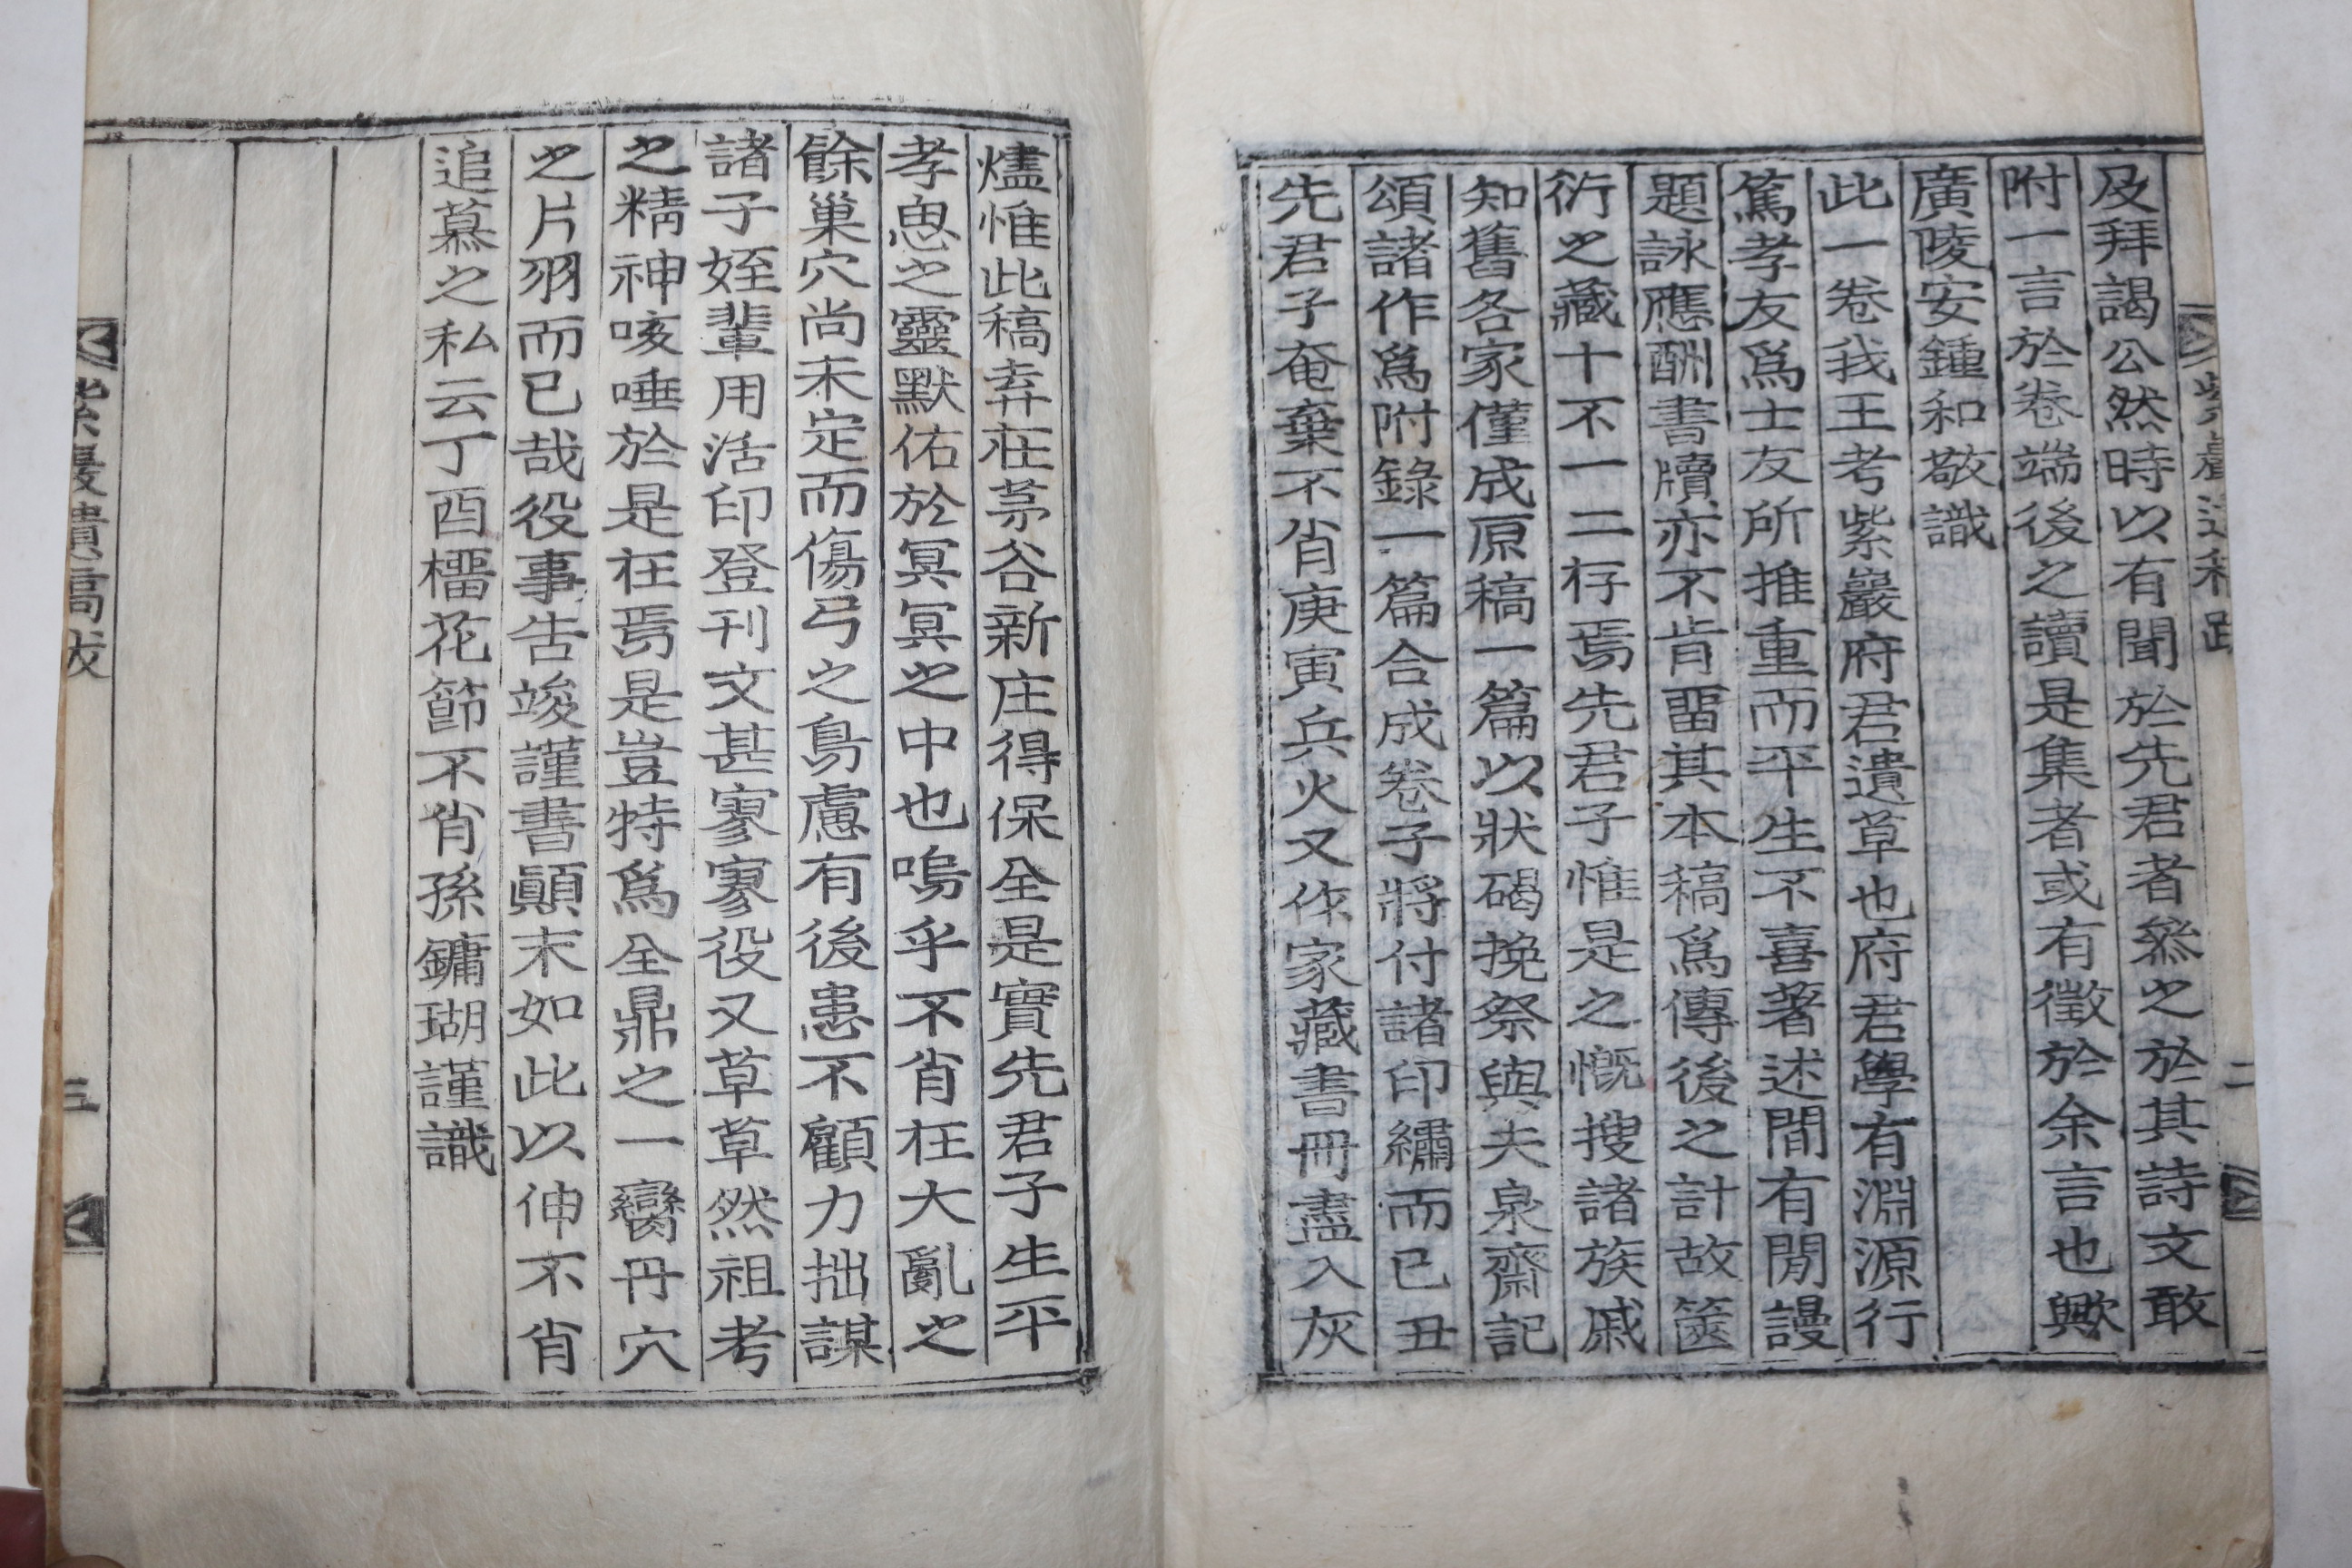 及拜謁公然時以有聞於先君者叅之於其詩文敢
附一言於卷端後之讀是集者或有徵於余言也歟
廣陵安鍾和敬識
此一卷我王考紫巖府君遺草也府君學有淵源行
篤孝友爲士友所推重而平生不喜著述間有閒謾
題詠應酬書牘亦不肯畱其本稿爲傳後之計故篋
衍之藏十不一二存焉先君子惟是之慨搜諸族戚
知舊各家僅成原稿一篇以狀碣挽祭與夫泉齋記
頌諸作爲附錄一篇合成卷子將付諸印繡而已丑
先君子奄棄不肖庚寅兵火又作家藏書冊盡入灰
燼惟此稿弆在茅谷新庄得保全是實先君子生平
孝思之靈默佑於冥冥之中也嗚乎不肖在大亂之
餘巢穴尚未定而傷弓之鳥慮有後患不顧力拙謀
諸子姪輩用活印登刊文甚寥寥役又草草然祖考
之精神咳唾於是在焉是豈特爲全鼎之一臠丹穴
之片羽而已哉役事告竣謹書顚末如此以伸不肖
追慕之私云丁酉榴花節不肖孫鏞瑚謹識
紫巖遺稿跋
二
紫巖遺稿跋
三